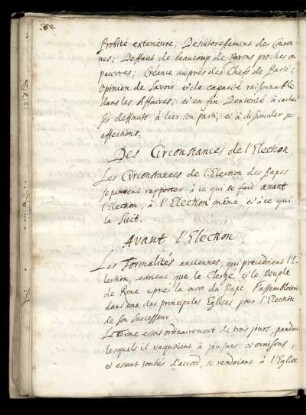 Probité exterieure; Desinteressement des Couron=
nes; Deffaut de beaucoup de Parens proches ou
pauvres; Creance auprés des Chefs de Parti;
Opinion de Savoir & de Capacité raisonnable
dans les Affaires; & enfin Dexterité à cacher
ses deffauts, à lier son parti, & à dissimuler ses
affections.
Des Circonstances de l'Election
Les Circonstances de l'Election des Papes
se peuvent rapporter à ce qui se fait avant
l'Election, à l'Election même, & à ce qui
la Suit.
Avant l'Election
Les Formalités anciennes, qui precedoient l'E=
lection, étoient que le Clergé & le Peuple
de Rome aprés la mort du Pape s'assembloient
dans une des principales Eglises pour l'Election
de son Successeur.
Le terme étoit ordinairement de trois jours, pendant
lesquels ils vaquoient à jeunes & oraisons,
& étant tombés d'accord, se rendoient à l'Eglise